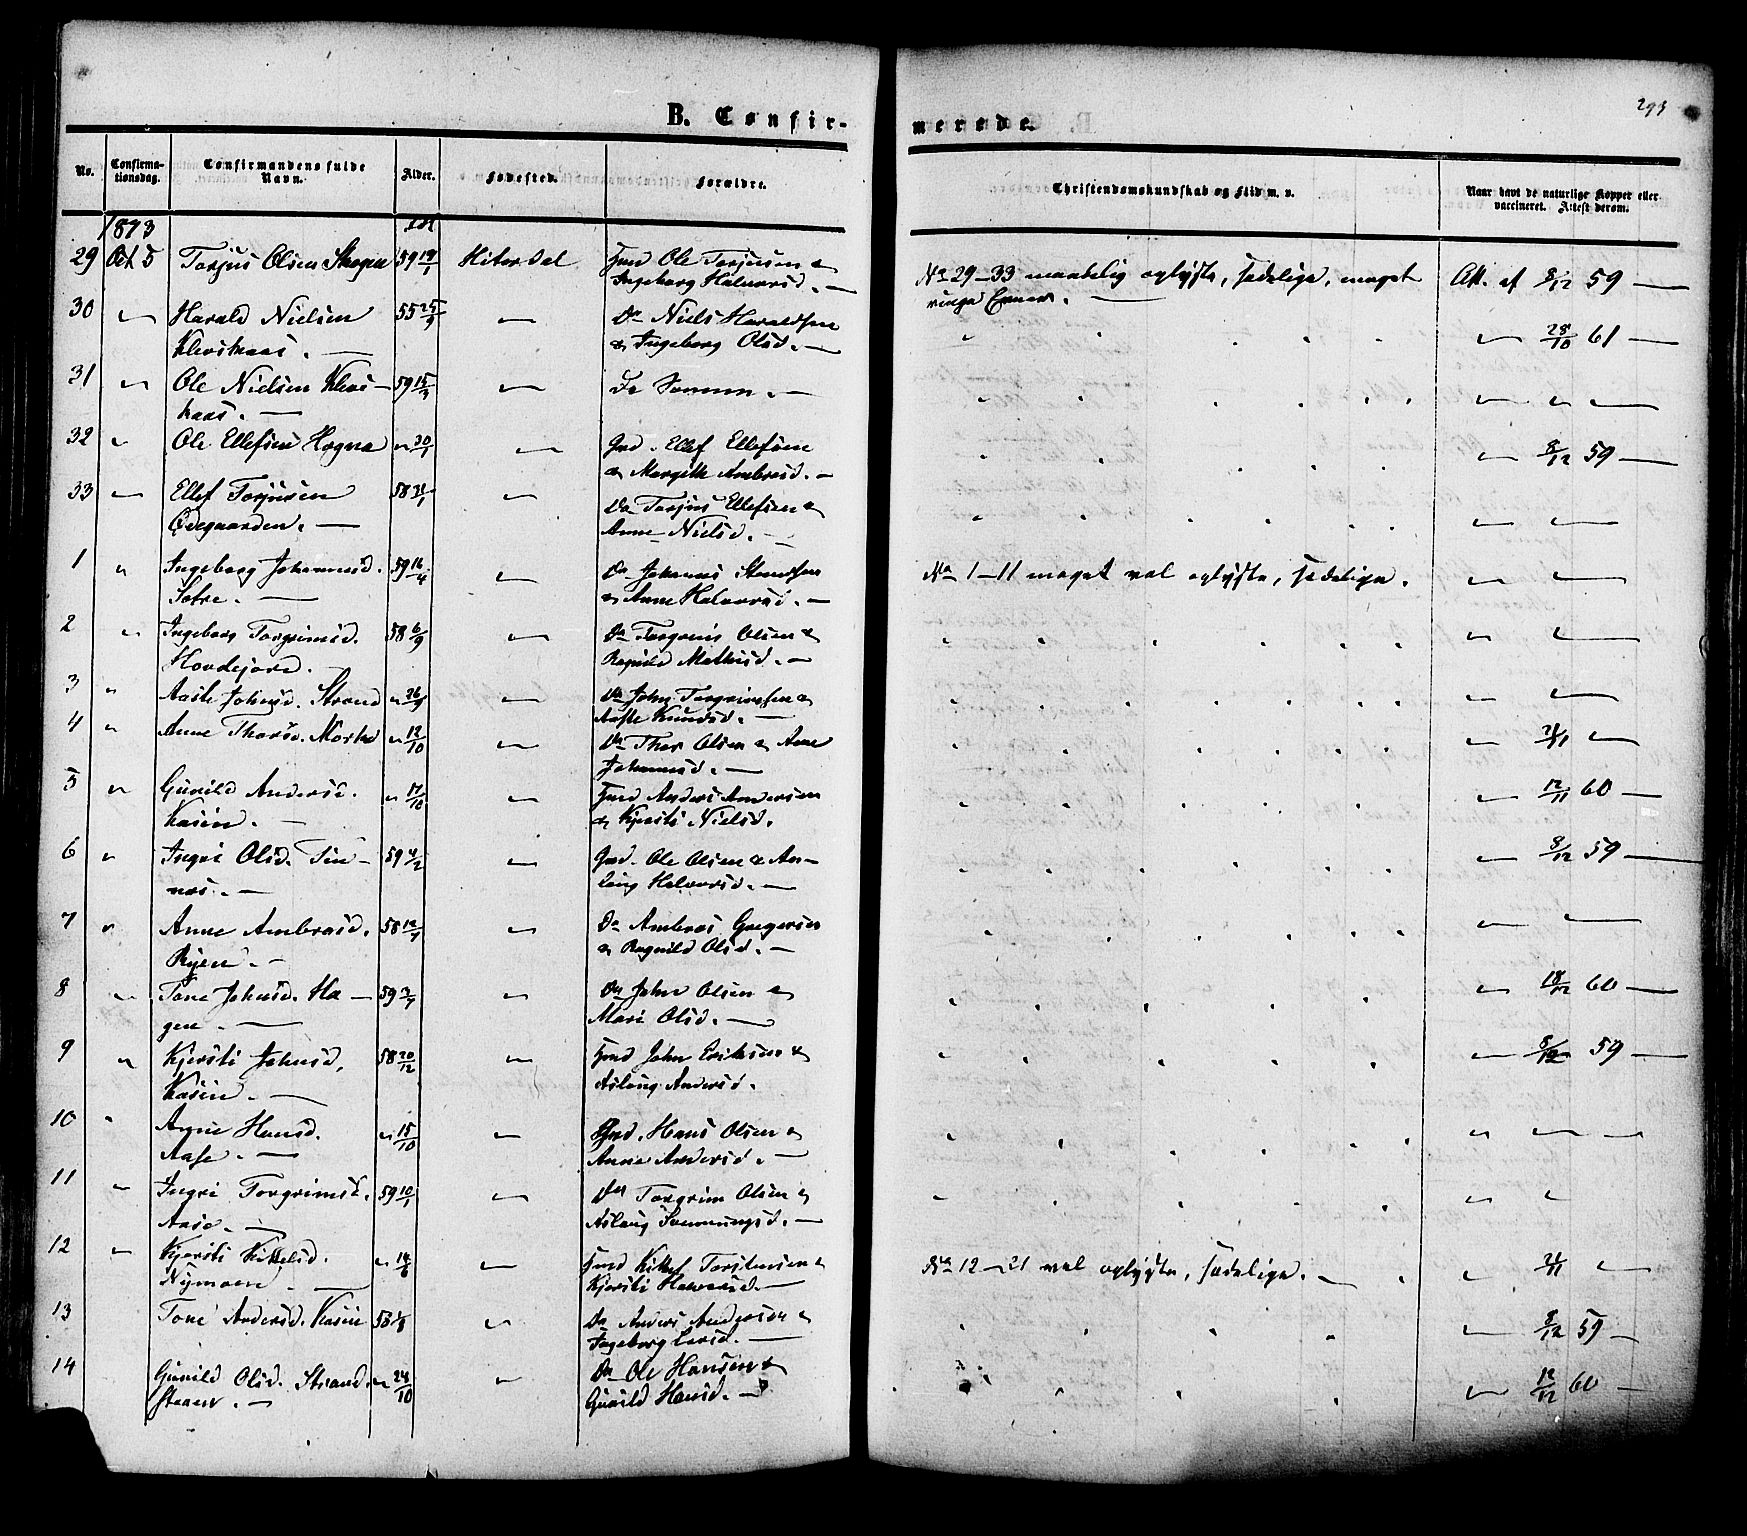 B. Confir-
merede.
293
No.
Confirma-
tionsdag.
Confirmandens fulde
Navn.
Alder.
Fødested.
Forældre.
Christendomskundskab og Flid m. v.
Naar havt de naturlige Kopper eller
vaccineret. Attest derom.
1873
29 Oct 5 Torjus Olsen Skogen 59 19/1 Hiterdal Gmd Ole Torjusen &
Ingeborg Halvorsd. —
No 29-33 maadelig oplyste, sædelige, meget
ringe Evner. —
Att. af 8/12 59 —
30 " Harald Nielsen 55 25/9 " Do Niels Haraldsen
Klevskaas. — & Ingeborg Olsd. —
" 28/10 61 —
31 " Ole Nielsen Klevs- 59 15/3 " De Samme. —
kaas. —
32 " Ole Ellefsen Hogna " 30/1 " Gmd. Ellef Ellefsen
& Margith Ambrosd. —
" 8/12 59 —
33 " Ellef Torjusen 58 21/1 " Do Torjus Ellefsen &
Ødegaarden. — Anne Nielsd. —
1 " Ingeborg Johannesd. 59 16/4 " Do Johannes
Sætre. — & Anne Halvorsd. —
No 1-11 meget vel oplyste, sædelige.
2 " Ingeborg Torgrimsd. 58 6/9 " Do Torgrim Olsen &
Hovdejord. Ragnild Mathisd. —
3 " Aaste Johnsd. Strand " " Do John Torgrimsen &
Aaste Knudsd. —
4 " Anne Thorsd. " 12/10 " Do Thor Olsen & Anne
Johannesd. —
" 21/11 "
5 " Gunild Andersd. " 17/10 " Gmd Anders Andersen
Kasin. — & Kjersti Nielsd.
" 12/11 60 —
6 " Ingri Olsd. Tin- 59 4/2 " Gmd. Ole Olsen & As-
nes. — laug Halvorsd. —
" 8/12 59 —
7 " Anne Ambrosd. 58 12/7 " Do Ambros Gregersen
Ryen. — & Ragnild Olsd. —
8 " Tone Johnsd. Ha- 59 3/7 " Do John Olsen &
gen. — Mari Olsd. —
" 18/12 60 —
9 " Kjersti Johnsd. 58 20/12 " Gmd John Eriksen &
Kasin. — Aslaug Andersd.
" 8/12 59 —
10 " Anne Hansd. " 15/10 " Gmd. Hans Olsen &
Aase. — Anne Andersd. —
11 " Ingri Torgrimsd. 59 10/1 " Do Torgrim Olsen &
Aase. — Aslaug Sveinungsd. —
12 " Kjersti Kittelsd. " 14/6 " Gmd Kittel Torstensen &
Nymoen. — Kjersti Halvorsd. —
No 12-21 vel oplyste, sædelige. —
" 21/11 "
13 Tone Andersd. Kasin 58 " Do Anders Andersen &
Ingeborg Larsd. —
" 8/12 59 —
14 Gunild Olsd. Strand- " 24/10 " Do Ole Hansen &
støen. — Gunild Hansd. —
" 12/12 60 —